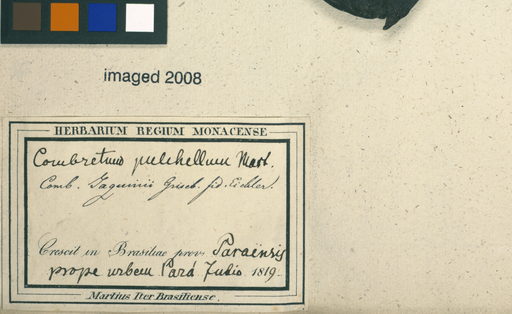 imaged 2008
HERBARIUM REGIUM MONACENSE
Combretum pulchellum Mart.
Comb. Jaquinii Griseb. fid. Eichler!
Crescit in Brasiliae prov. Paraënsis
prope urbem Pará Julio 1819.
Martius Iter Brasiliense.